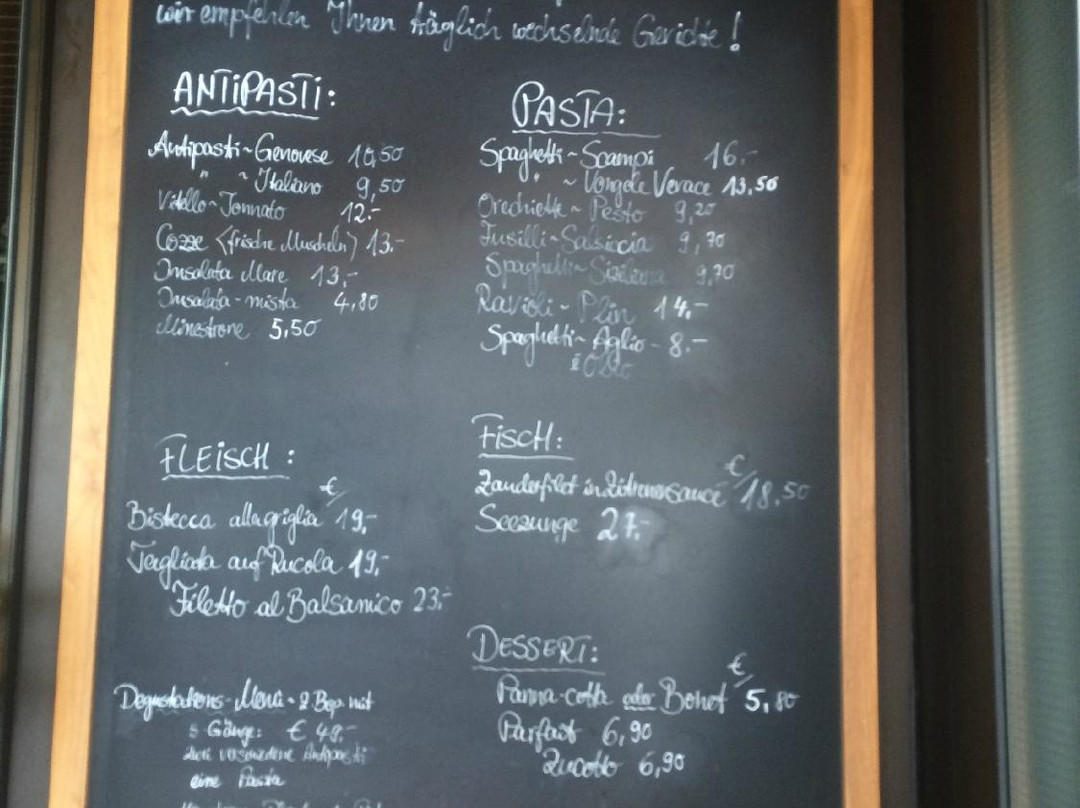 wir empfehlen Ihnen täglich wechselnde Gerichte!
ANTIPASTI:
Antipasti ~ Genovese 10,50
" ~ Italiano 9,50
Vitello ~ Tonnato 12.-
Cozze (frische Muscheln) 13.-
Insalata Mare 13,-
Insalata - mista 4,80
Minestrone 5,50
PASTA:
Spaghetti ~ Scampi 16.-
" ~ Vongole Verace 13,50
Orechiette ~ Pesto 9,20
Fusilli ~ Salsiccia 9,70
Spaghetti ~ 9,20
Ravioli ~ Plin 14,-
Spaghetti ~ Aglio - 8.-
FLEISCH:
€
Bistecca alla griglia 19,-
Tagliata auf Rucola 19,-
Filetto al Balsamico 23.-
FISCH:
€
Zanderfilet in Zitronensauce 18,50
Seezunge 27.-
Degustations - Menü -
5 Gänge: € 48,-
verschiedene Antipasti
eine Pasta
DESSERT:
€
Panna-cotta oder Bonet 5,80
Parfait 6,90
Zucotto 6,90